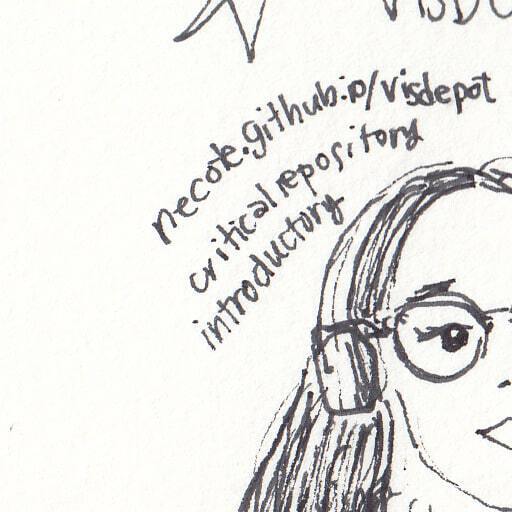 VISD
necote.github.io/visdepot
critical repository
introductory